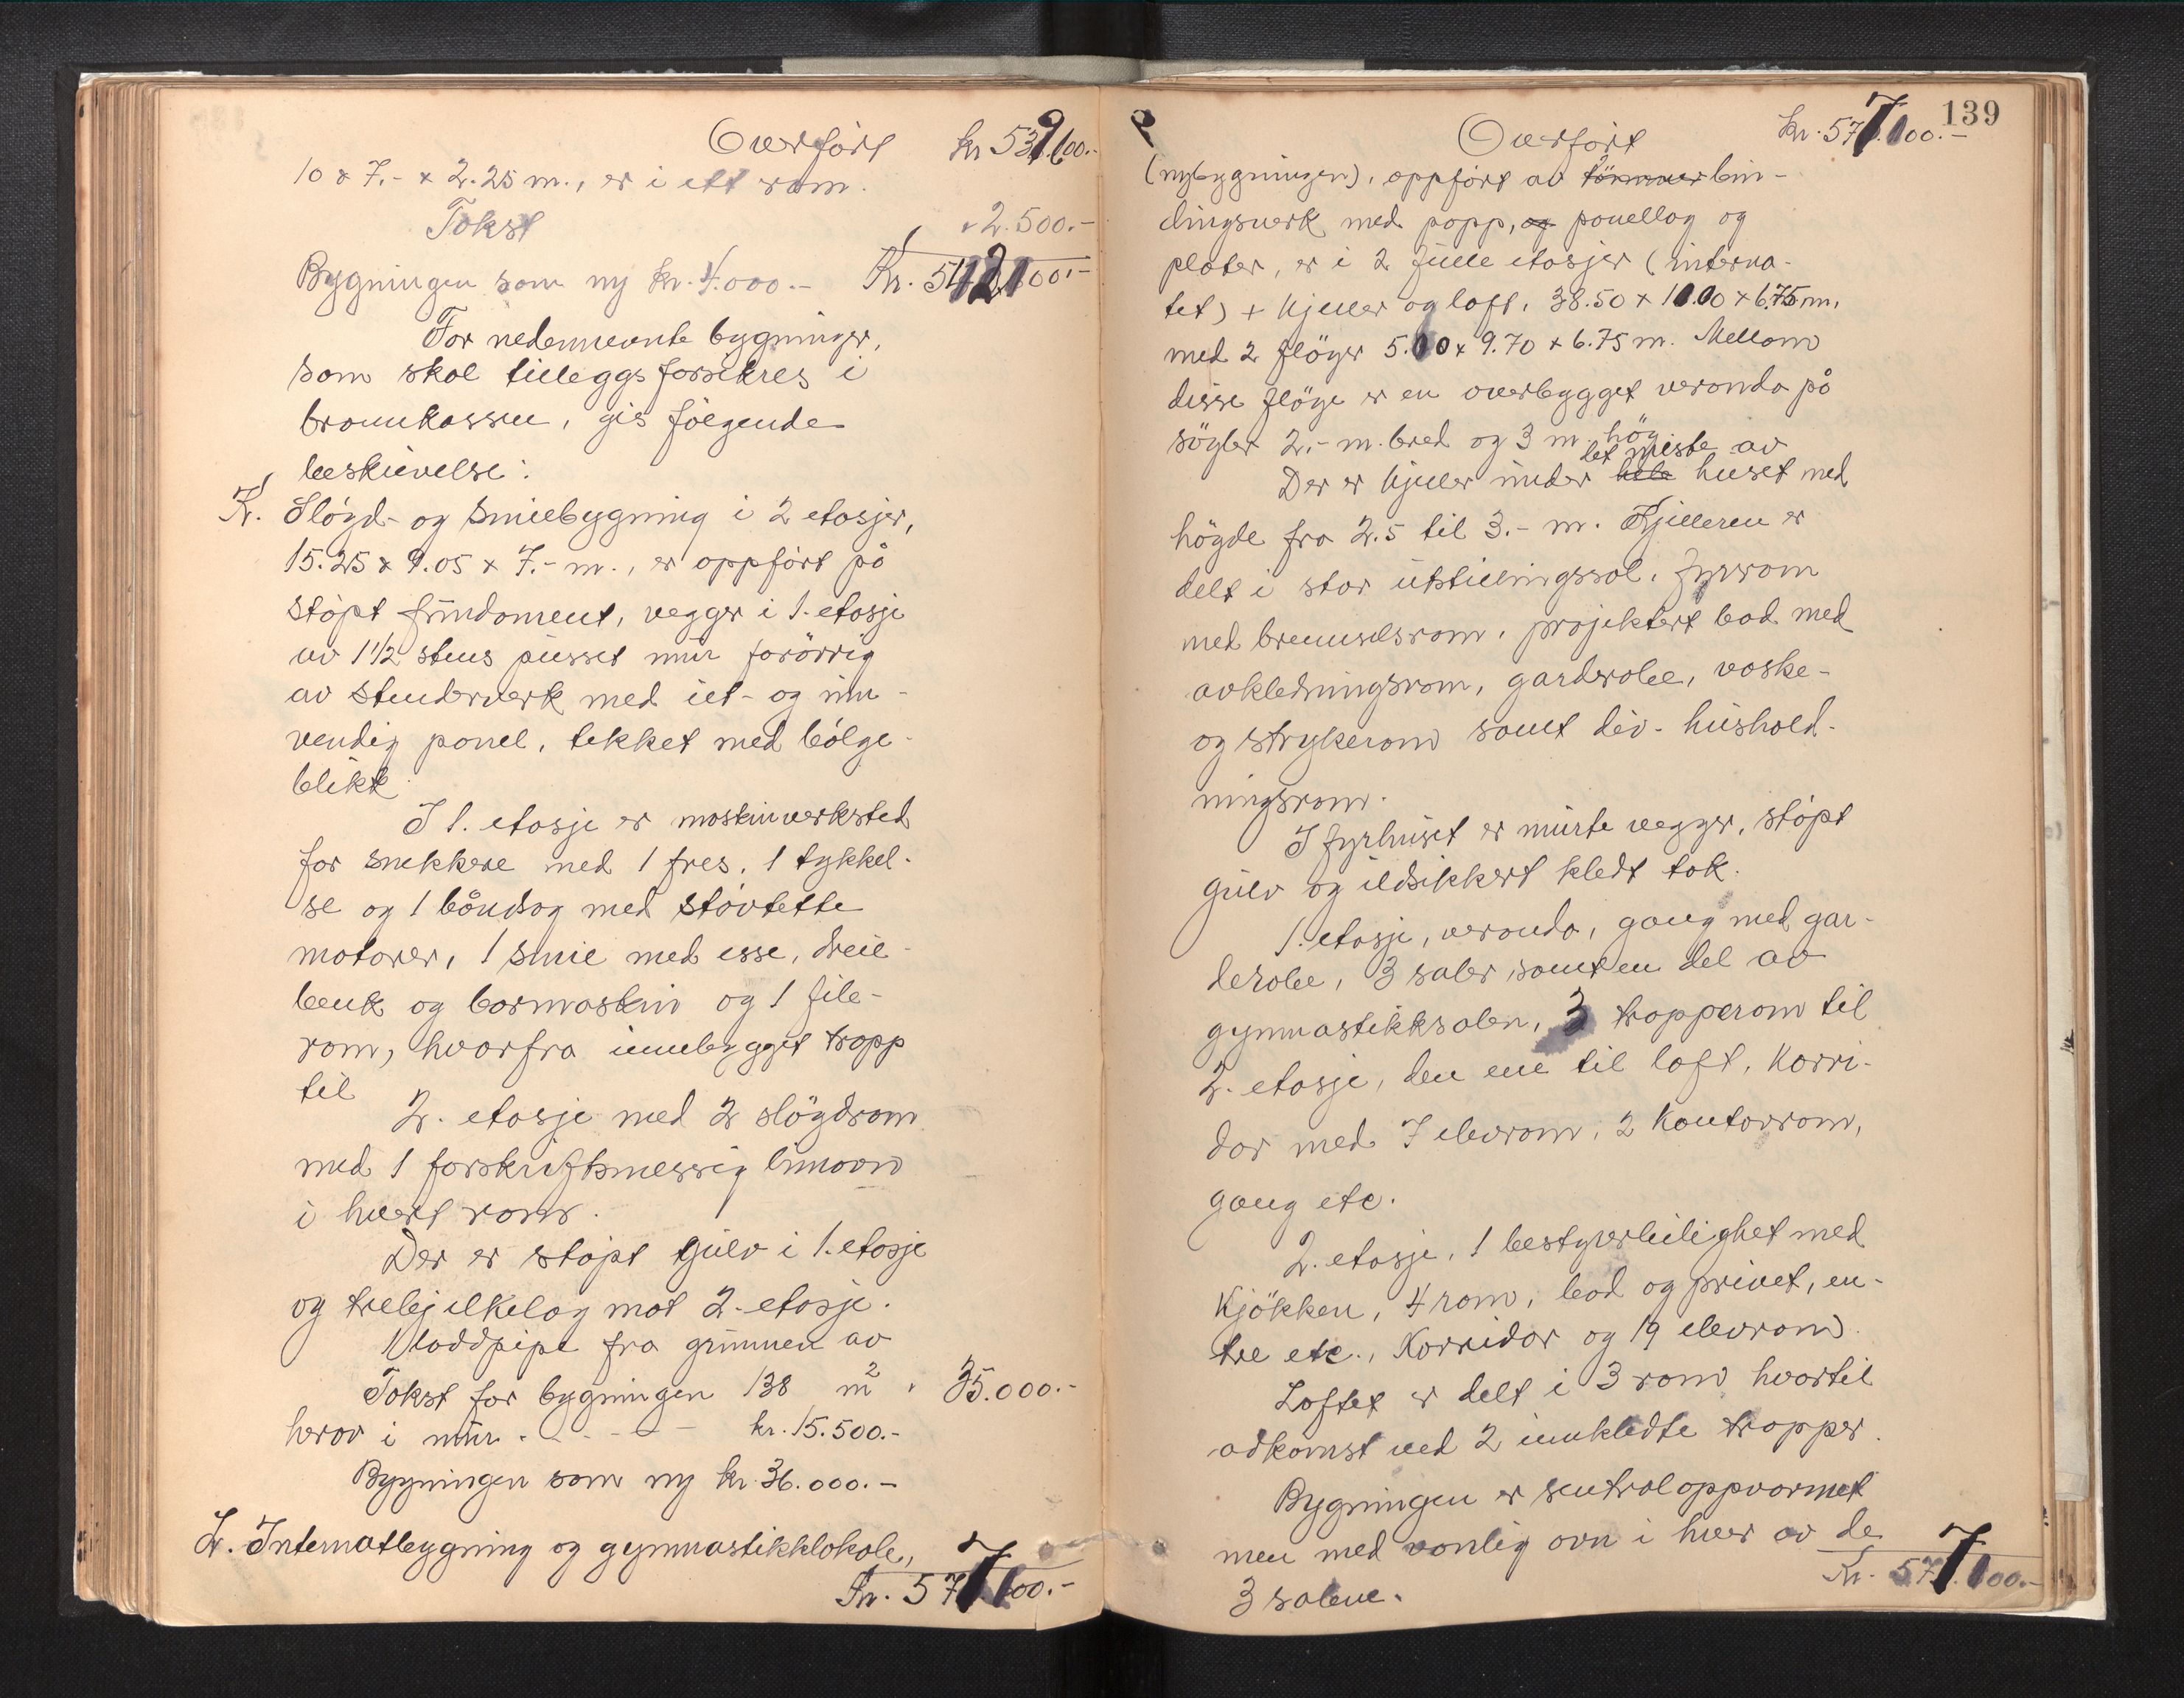 Overført kr 539.600.-
10 x 7.- x 2.25 m., er i ett rom.
Takst " 2.500.-
Bygningen som ny kr. 4.000.- Kr. 542.100.-
For nedennevnte bygninger,
som skal tilleggsforsikres i
brannkassen, gis følgende
beskrivelse:
K. Sløyd- og Smiebygning i 2 etasjer,
15.25 x 9.05 x 7.- m., er oppført på
støpt fundament, vegger i 1. etasje
av 1 1/2 stens pusset mur forøvrig
av stenderverk med ut- og inn-
vendig panel, tekket med bølge-
blikk.
I 1. etasje er maskinverksted
for snekkere med 1 fres, 1 tykkel-
se og 1 båndsag med støvtette
motorer, 1 smie med esse, dreie-
benk og bormaskin og 1 file-
rom, hvorfra innebygget trapp
til
2. etasje med 2 sløydrom
med 1 forskriftsmessig limovn
i hvert rom.
Der er støpt gulv i 1. etasje
og trebjelkelag mot 2. etasje.
1 loddpipe fra grunnen av
Takst for bygningen 138 m² " 35.000.-
herav i mur . - - - - kr. 15.500.-
Bygningen som ny kr. 36.000.-
L. Internatbygning og gymnastikklokale,
Kr. 577.100.-
139
Overført kr. 577.100.-
(nybygningen), oppført av tømmer bin-
dingsverk med papp, og panellag og
plater, er i 2 fulle etasjer (interna-
tet) + kjeller og loft, 38.50 x 10.00 x 6.75 m,
med 2 fløyer 5.00 x 9.70 x 6.75 m. Mellom
disse fløye er en overbygget veranda på
søyler 2.- m. bred og 3 m. høy.
det meste av
Der er kjeller under hele huset med
høyde fra 2.5 til 3.- m. Kjelleren er
delt i stor utstillingssal, fyrrom
med brenselsrom, projektert bad med
avkledningsrom, garderobe, vaske-
og strykerom samt div. hushold-
ningsrom.
I fyrhuset er murte vegger, støpt
gulv og ildsikkert kledt tak.
1. etasje, veranda, gang med gar-
derobe, 3 saler samt en del av
gymnastikksalen, 3 trapperom til
2. etasje, den ene til loft, korri-
dor med 7 elevrom, 2 kontorrom,
gang etc.
2. etasje, 1 bestyrerleilighet med
kjøkken, 4 rom, bad og privet, en-
tre etc., Korridor og 19 elevrom.
Loftet er delt i 3 rom hvortil
adkomst ved 2 innkledte trapper.
Bygningen er sentraloppvarmet
men med vanlig ovn i hver av de
3 salene. Kr. 577.100.-